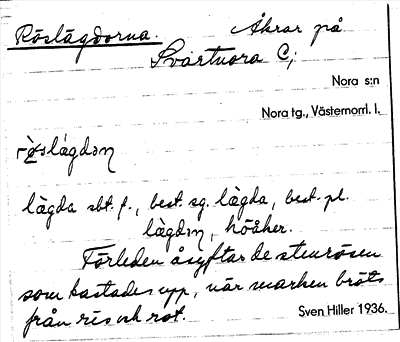 Röslägdorna. Åkrar på
Svartnora C;
Nora s:n
Nora tg., Västernorrl. l.
lägda sbt. f., best. sg. lägda, best. pl.
lägdɱ, höåker.
Förleden åsyftar de stenrösen
som kastades upp, när marken bröts
från ris och rot.
Sven Hiller 1936.